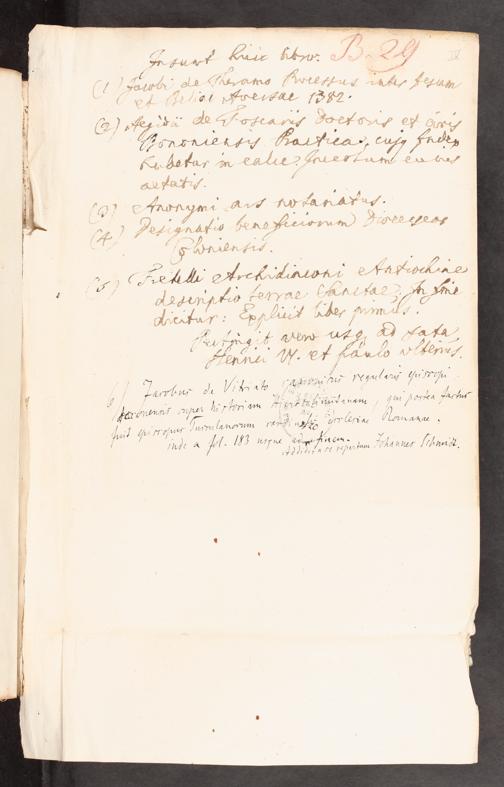 Insunt huic libro. B. 29
IV
(1) Jacobi de Theramo Processus inter Jesum
et Belial Aversae 1382.
(2) Aegidii de Foscaris Doctoris et civis
Bononiensis Practica, cujus Index
habetur in calce. Incertum cujus
aetatis.
(3) Anonymi ars notariatus.
(4) Designatio beneficiorum Dioeceseos
Coloniensis.
(5) Fretelli Archidiaconi Antiochiae
descriptio terrae Sanctae, In fine
dicitur: Explicit liber primus.
Pertingit vero usq ad fata
Henrici IV. et paulo ulterius.
6) Jacobus de Vitriaco canonicus regularis episcopi
Acconensis super historiam , qui postea factus
fuit episcopus Tusculanorum cardinalis Ecclesiae Romanae.
inde a fol. 183 usque ad finem.
Johannes Schmidt.